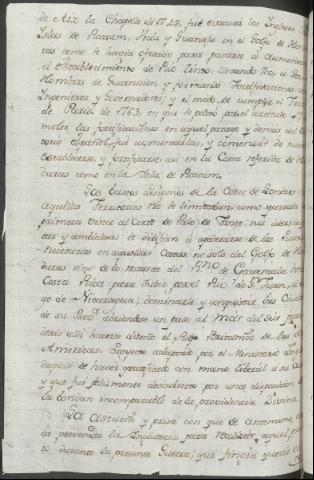 de Aix la Chapelle de 1749. fué evacuar los Ingleses las
Islas de Roatam, Utila y Guanaja en el Golfo de Hon
ras como le havia ofrecido, para pasarse à aumentar
el establecimiento de Rio Tinto, llevando
Hombres de Guarnicion y formando Fortificaciones con
Ingenieros y Governadores; y el modo de cumplir el Trat
de Paris de 1763. en que se pactó por el articulo
moler las fortificaciones en aquel parage y demas del
torio Español, fué aumentarlas, y comenzar de nuevo
establecerse, y fortificarse asi en la Costa referida de
duras como en la Isla de Roatam.
Los vastos designios de la Corte de Londres
aquellos Territorios no se limitaban como parecia
primera vista al Corte de Palo de Tinte: sus ideas
y ambiciosas se dirigian à apoderarse de los Puer
necesarios en aquellas Costas no solo del Golfo de
duras sino de lo restante del Rno de Guatemala
Costa Rica para subir por el Rio de Sn Juan, al
go de Nicaragua; dominarle y conquistar las Ciudad
de su Provª abriendose un paso al mar del Sur para
desde alli hacerse dueño el Rey Britanico de las
Americas. Proyecto adoptado por el Ministerio Ingl
despues de haver gratificado con mano liberal à su
y que fué felizmente descubierto por una disposicion de
la bondad incomparable de la providencia Divina.
La astucia, y prisa con que de antemano
la prevenida la Inglaterra para realizar aquel
to durante la presente Guerra; que fingia querer